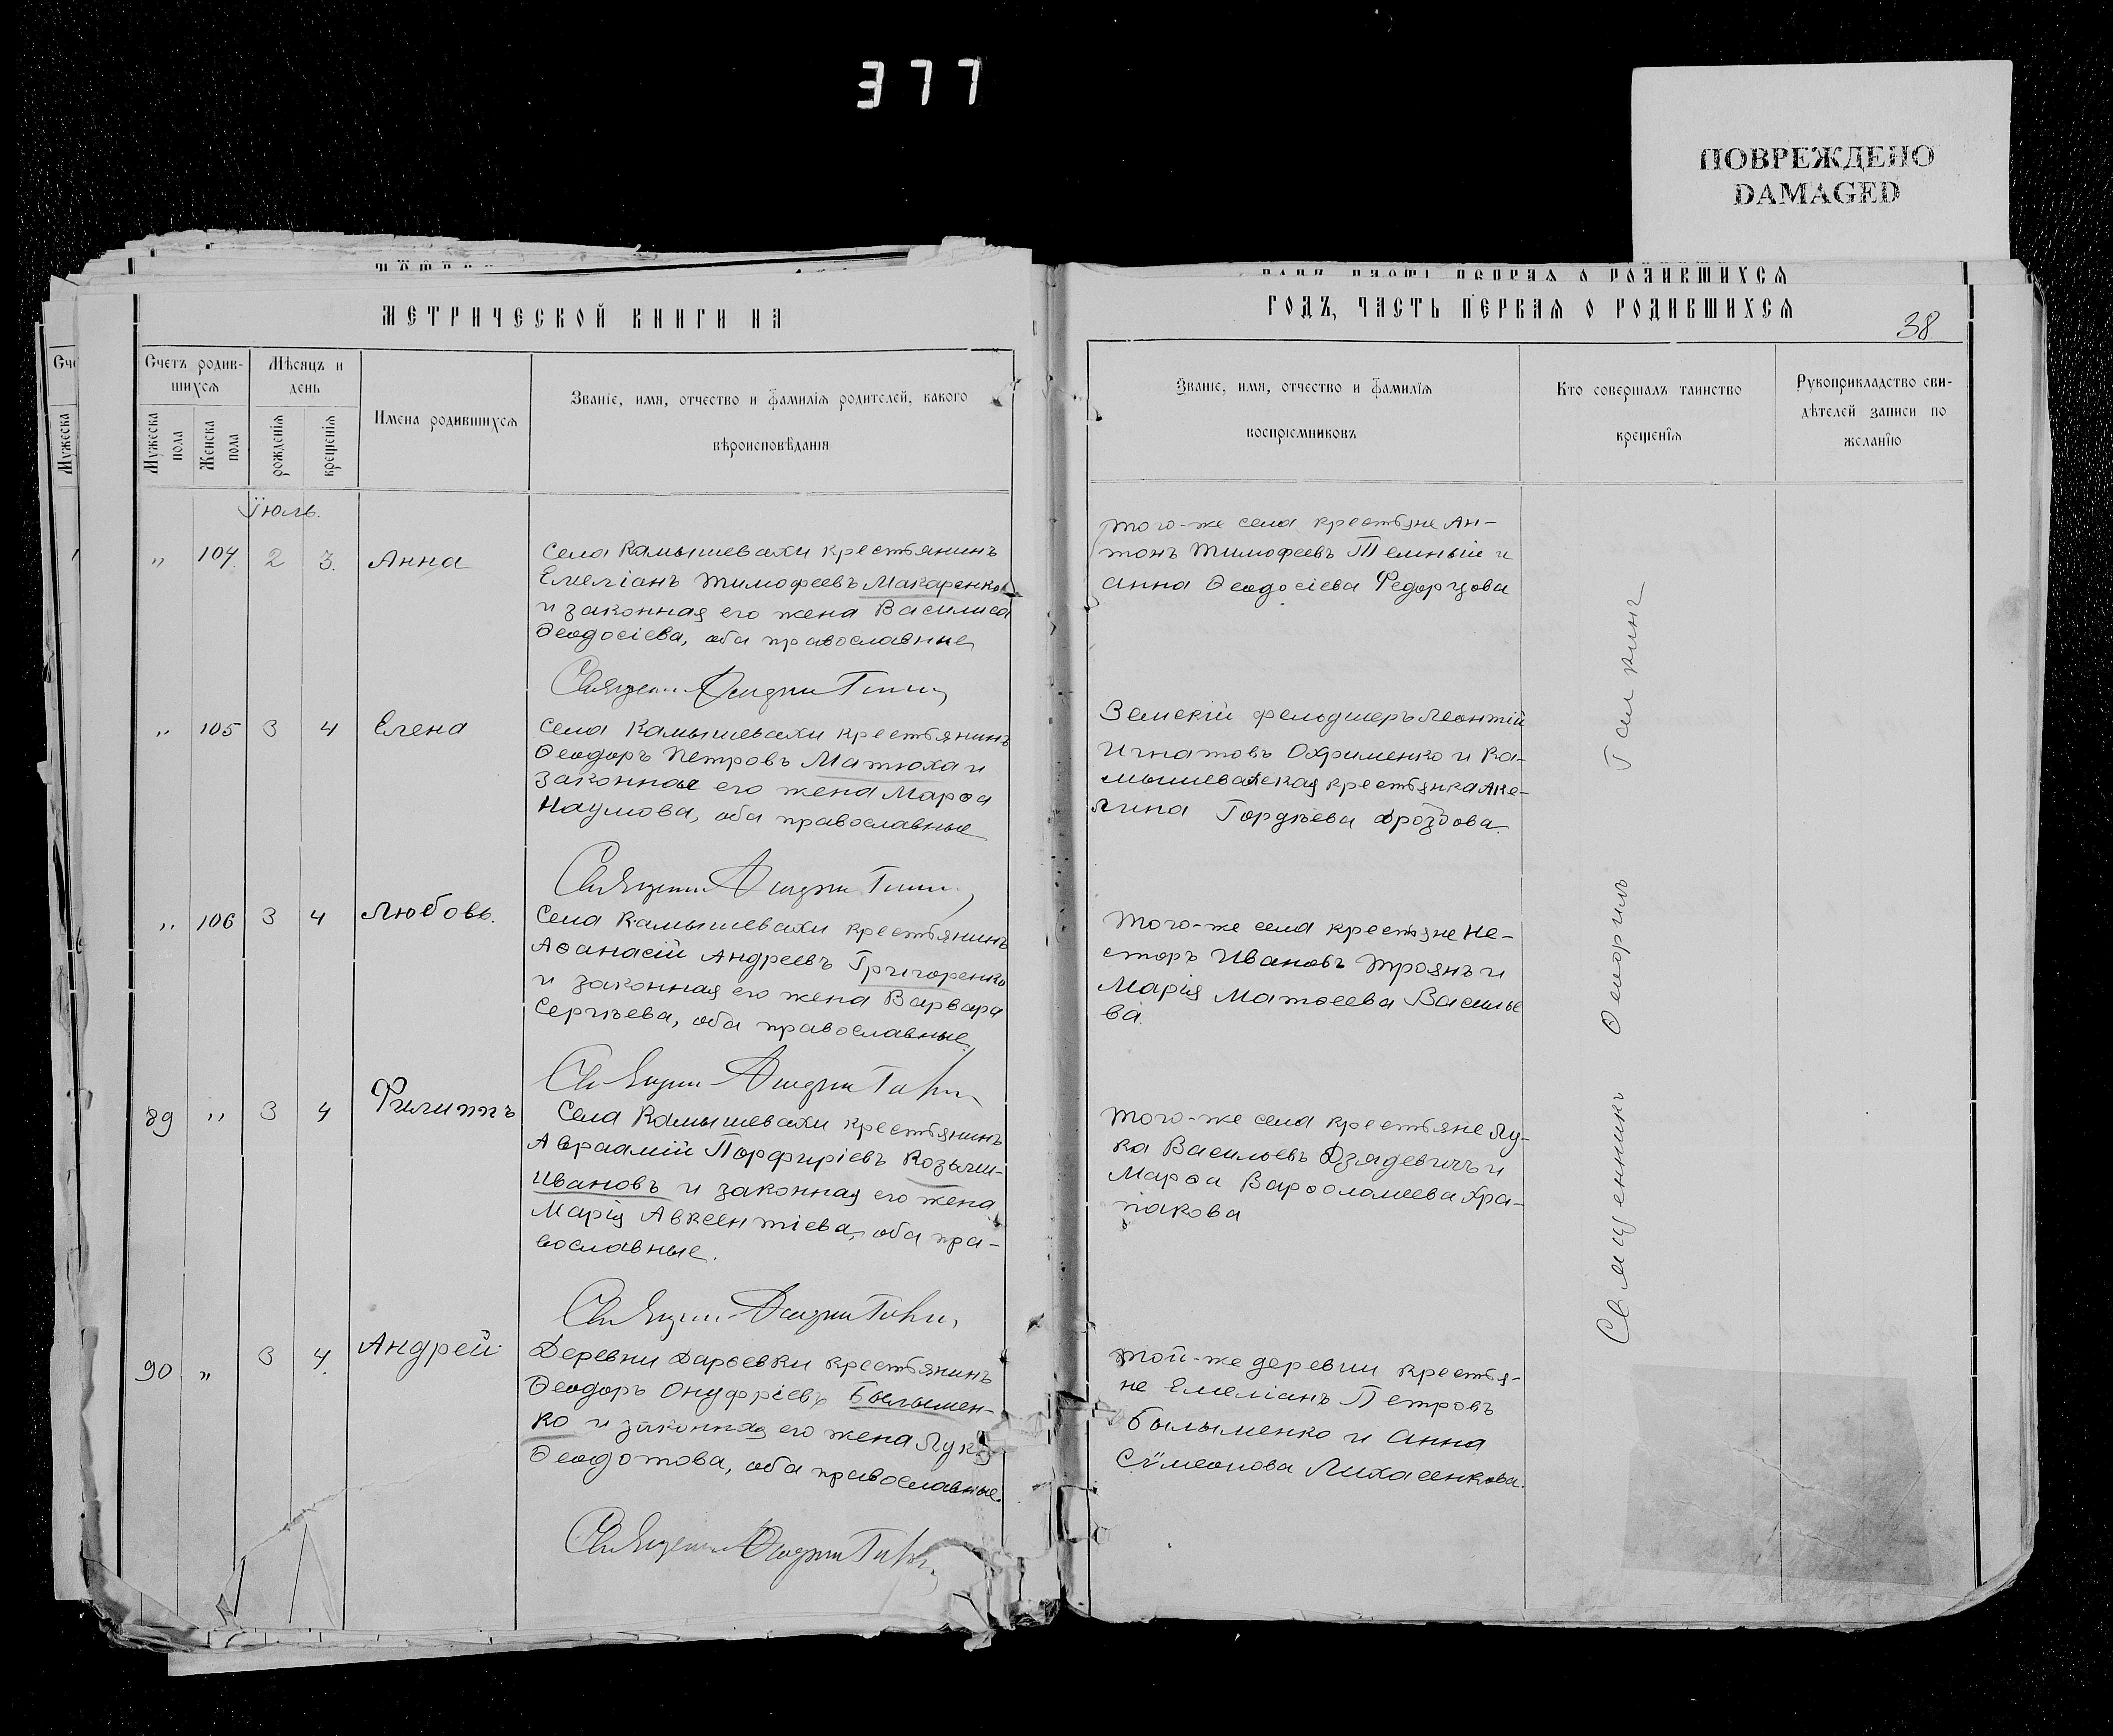 377
ПОВРЕЖДЕНО
DAMAGED
МЕТРИЧЕСКОЙ КНИГИ НА
ГОДЪ, ЧАСТЬ ПЕРВАЯ О РОДИВШИХСЯ
38
Счетъ родив-
шихся
Мужеска пола
Женска пола
Мѣсяцъ и
день
рожденія
крещенія
Имена родившихся
Званіе, имя, отчество и фамилія родителей, какого
вѣроисповѣданія
Званіе, имя, отчество и фамилія
воспріемниковъ
Кто совершалъ таинство
крещенія
Рукоприкладство сви-
дѣтелей записи по
желанію
Іюль.
„ 104. 2 3. Анна
Села Камышевахи крестьянинъ
Емеліанъ Тимофеевъ Макаренко
и законная его жена Василиса
Ѳеодосіева, оба православные
того-же села крестьяне Ан-
тонъ Тимофеевъ Темный и
Анна Ѳеодосіева Федорцова
„ 105 3 4 Елена
Села Камышевахи крестьянинъ
Ѳеодоръ Петровъ Матюха и
законная его жена Марѳа
Наумова, оба православные
Земскій фельдшеръ Леонтій
Игнатовъ Охрименко и Ка-
мышевахская крестьянка Аке-
лина Гордѣева Дроздова.
„ 106 3 4 Любовь.
Села Камышевахи крестьянинъ
Аѳанасій Андреевъ Григоренко
и законная его жена Варвара
Сергѣева, оба православные.
Того-же села крестьяне Не-
сторъ Ивановъ Троянъ и
Марія Матѳеева Василье
ва.
89 „ 3 4 Филиппъ
Села Камышевахи крестьянинъ
Авраамій Порфиріевъ
Ивановъ и законная его жена
Марія Авксентіева, оба пра-
вославные.
Того-же села крестьяне Лу-
ка Васильевъ Дзядевичъ и
Марѳа Варѳоломеева Хра-
пакова
90 „ 3 4. Андрей
Деревни Дарьевки крестьянинъ
Ѳеодоръ Онуфріевъ Былымен-
ко и законная его жена
Ѳеодотова, оба православные.
той-же деревни крестья-
не Емеліанъ Петровъ
Былыменко и Анна
Сѵмеонова
Священникъ Галкинъ